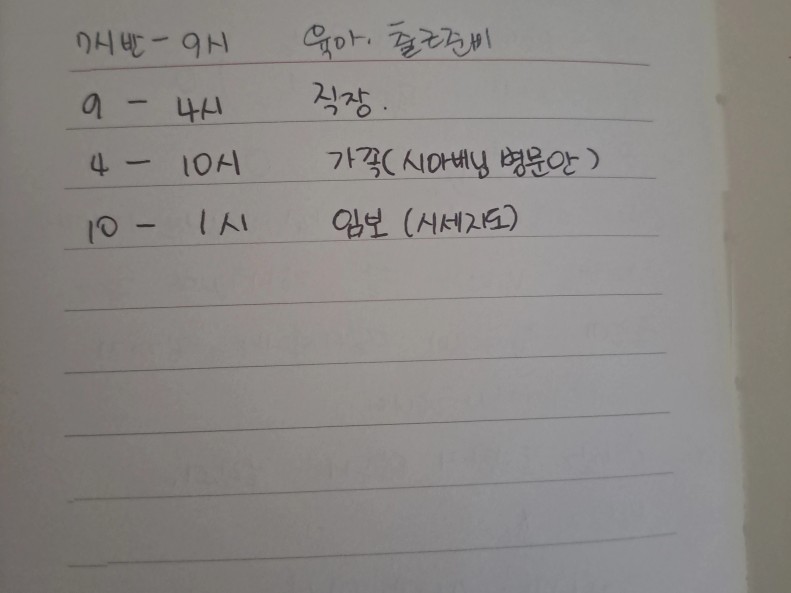 7시반 - 9시 육아. 출근준비
9 - 4시 직장.
4 - 10시 가족(시아버님 병문안)
10 - 1시 임보 (시세지도)